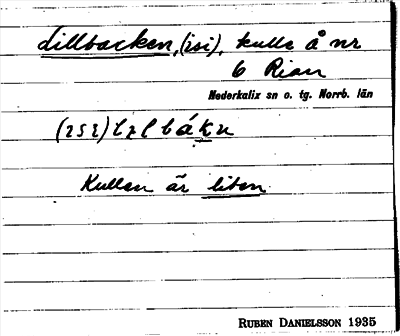 dillbacken, (isi), kulle å nr
6 Rian
Nederkalix sn o. tg. Norrb. län
Kullen är liten
RUBEN DANIELSSON 1935